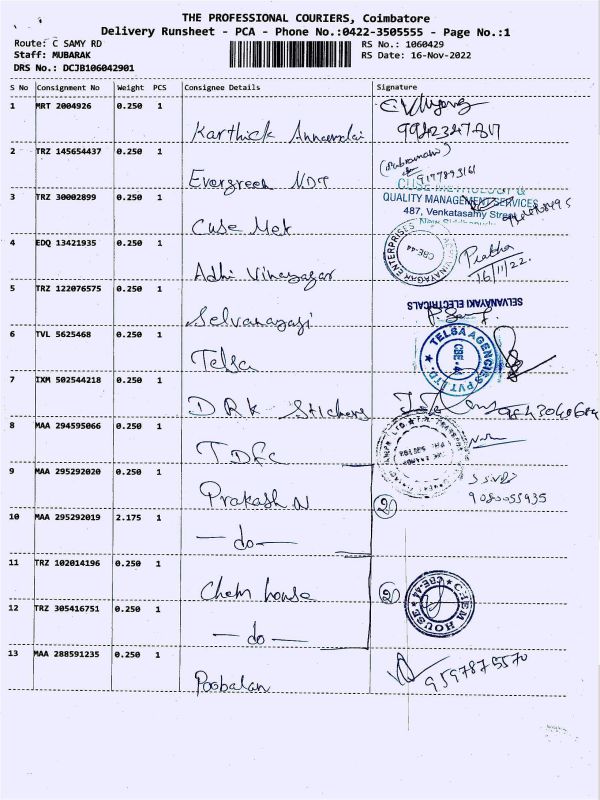 THE PROFESSIONAL COURIERS, Coimbatore
Delivery Runsheet - PCA - Phone No.:0422-3505555 - Page No.:1
Route: C SAMY RD
RS No.: 1060429
Staff: MUBARAK
RS Date: 16-Nov-2022
DRS No.: DCJB106042901
S No Consignment No Weight PCS Consignee Details Signature
1 MRT 2004926 0.250 1
Karthick Annamalai
2 TRZ 145654437 0.250 1
Evergreen NDT
9177893161
3 TRZ 30002899 0.250 1
QUALITY MANAGEMENT SERVICES
487, Venkatasamy Street
Cuse Met
4 EDQ 13421935 0.250 1
Adhi Vinayagar
VINAYAGAR ENTERPRISES CBE-44
Prabha
16/11/22.
5 TRZ 122076575 0.250 1
SELVANAYAKI ELECTRICALS
Selvanayagi
6 TVL 5625468 0.250 1
Telsa
TELSA AGENCIES PVT LTD.
7 IXM 502544218 0.250 1
DRK Stickers
8 MAA 294595066 0.250 1
TDFC
9 MAA 295292020 0.250 1
Prakash N
2
9080055935
10 MAA 295292019 2.175 1
— do —
11 TRZ 102014196 0.250 1
Chem house
2
CHEM HOUSE CBE-44
12 TRZ 305416751 0.250 1
— do —
13 MAA 288591235 0.250 1
Poobalan
9597875570